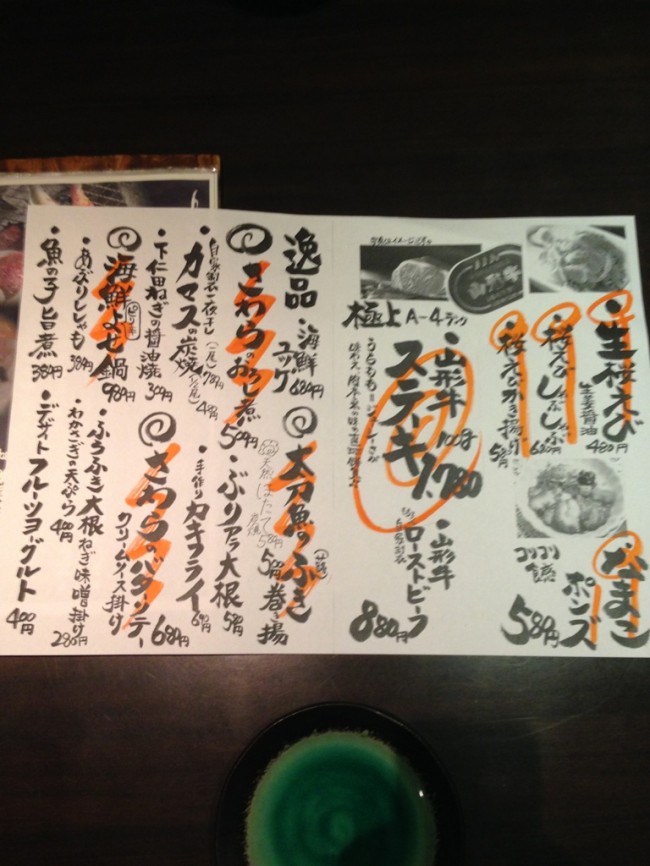 生桜えび
生姜醤油
480円
桜えびしゃぶしゃぶ
680円
桜えびかき揚げ
580円
なまこ
ポンズ
コリコリ
食感
580円
極上 A-4ランク
・山形牛
100g
ステーキ
1,780
うちもも
・山形牛
ローストビーフ
880円
逸品
海鮮
ユッケ
680円
さわらのおろし煮
500円
自家製一夜干し
カマスの炭焼
下仁田ねぎの醤油焼
300円
海鮮よせ鍋
980円
・あぶりししゃも
380円
・魚の子旨煮
380円
太刀魚の
巻き揚
580円
天然ほたて
・ぶりアラ大根
580円
・手作りカキフライ
さわらのバターソテー
クリームソース掛け
680円
・ふろふき大根
ねぎ味噌掛け
280円
・わかさぎの天ぷら
400円
・デザートフルーツヨーグルト
400円